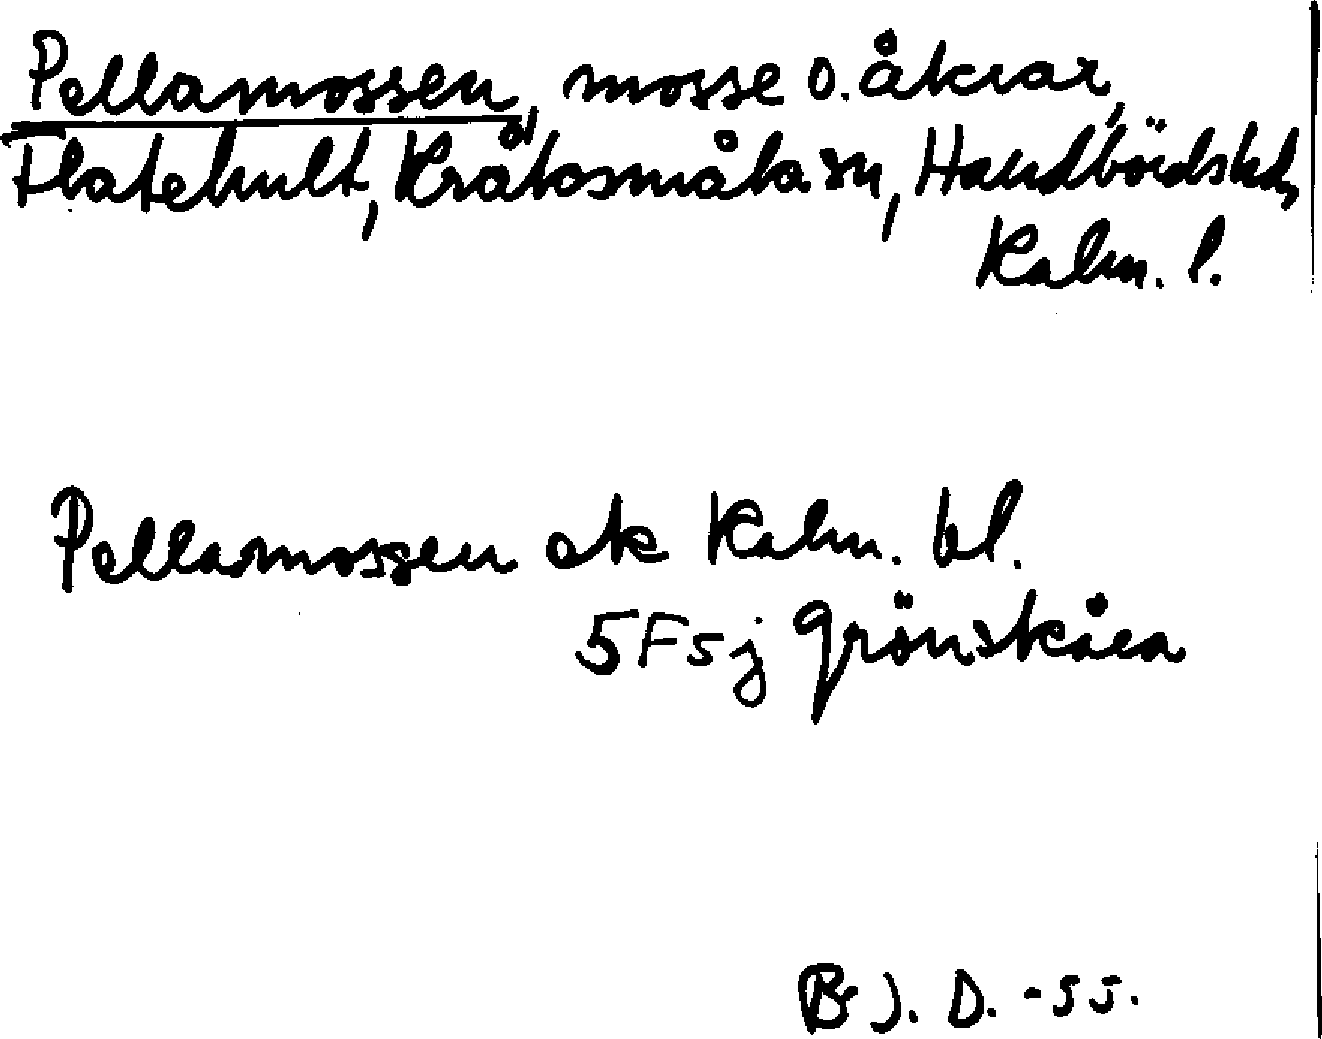 Pellamossen, mosse o. åkrar,
Flatehult, Kråksmåla sn, Handbörds hd,
Kalm. l.
Pellamossen ek Kalm. bl.
5F5j Grönskåra
B J. D. -55.